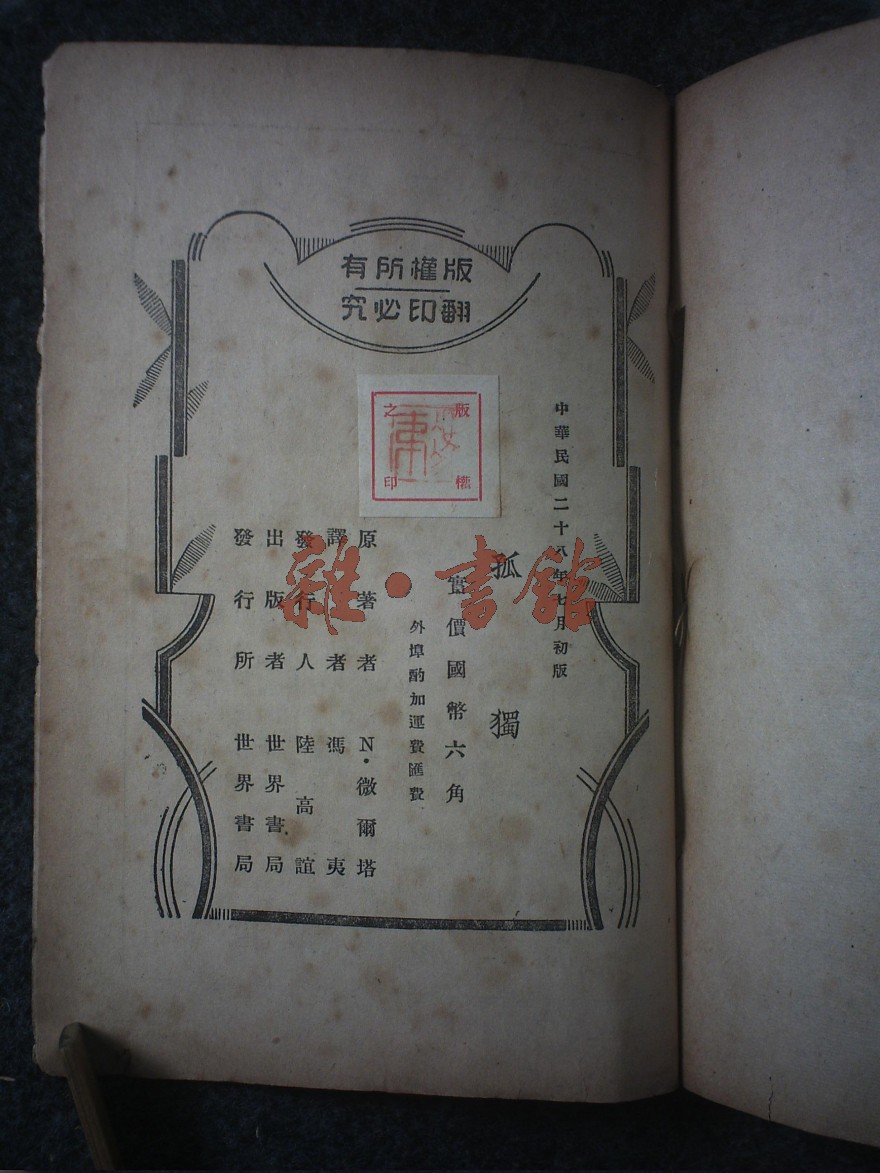 版權所有
翻印必究
版權之印
中華民國二十八年七月初版
孤獨
實價國幣六角
外埠酌加運費匯費
原著者 N·微爾塔
譯者 馮夷
發行人 陸高誼
出版者 世界書局
發行所 世界書局
雜·書館